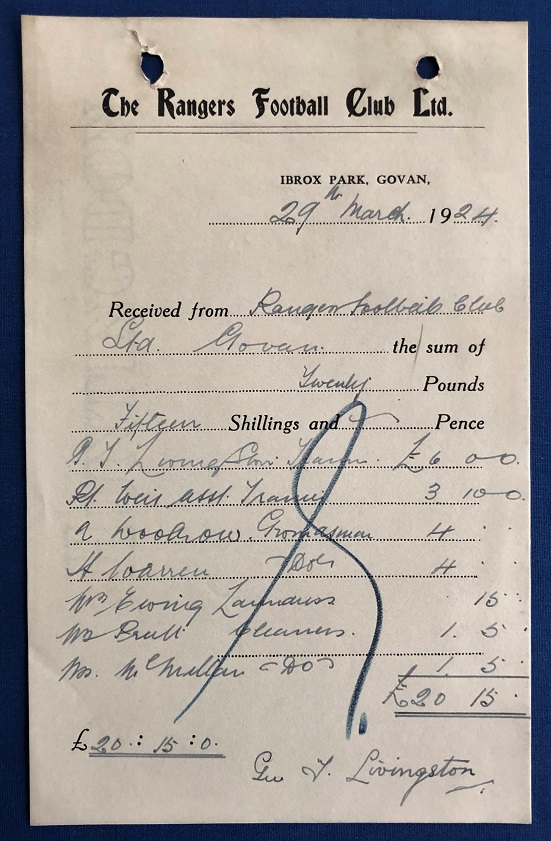 The Rangers Football Club Ltd.
IBROX PARK, GOVAN,
29th March. 1924.
Received from Rangers Football Club
Ltd Govan. the sum of
Twenty Pounds
Fifteen Shillings and — Pence
G. T. Livingston Trainer. £6 0 0.
Rt. Weir asst. Trainer 3 10 0
A Woodrow. Groundsman 4 . .
H Warren Do 4 . .
Mrs Ewing Laundress 15 .
Mrs Cleaners. 1. 5 .
Mrs. McMillan Do 1. 5 .
£20 15 .
£20 : 15 : 0.
Geo T. Livingston